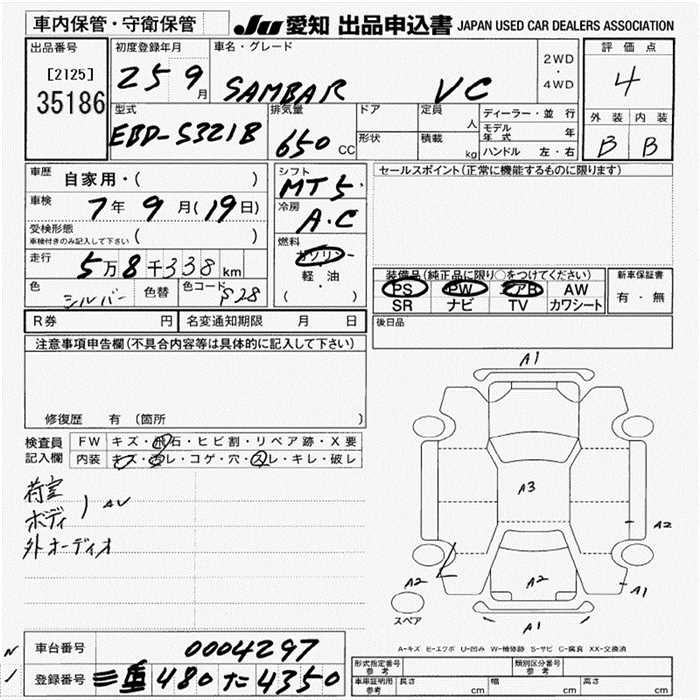 車内保管・守衛保管
JU 愛知 出品申込書 JAPAN USED CAR DEALERS ASSOCIATION
出品番号
[2125]
35186
初度登録年月
25 9月
車名・グレード
SAMBAR VC
2WD
・
4WD
評価点
4
外装 内装
B B
型式
EBD-S321B
排気量
650 CC
ドア
形状
定員
人
積載
kg
ディーラー・並行
モデル年式 年
ハンドル 左・右
車歴 自家用・( )
車検 7年9月(19日)
受検形態
車検付きのみ記入して下さい ( )
走行 5万8千338km
色 シルバー 色替 色コード S28
シフト
MT5
冷房
A.C
燃料
ガソリン
軽・油
( )
セールスポイント(正常に機能するものに限ります)
装備品(純正品に限り○をつけてください)
PS PW エアB AW
SR ナビ TV カワシート
新車保証書
有・無
R券 円 名変通知期限 月 日
後日品
注意事項申告欄(不具合内容等は具体的に記入して下さい)
修復歴 有 (箇所 )
検査員
記入欄
FW キズ・飛石・ヒビ割・リペア跡・X要
内装 キズ・汚レ・コゲ・穴・スレ・キレ・破レ
荷室
ボディ
外オーディオ
A1
A3
A2
A2
A2
A1
A1
スペア
A-キズ E-エクボ U-凹み W-補修跡 S-サビ C-腐食 XX-交換済
車台番号 0004297
登録番号 三重 480 た 4350
形式指定番号
参考
類別区分番号
参考
車車証明用
参考
長さ cm 幅 cm 高さ cm